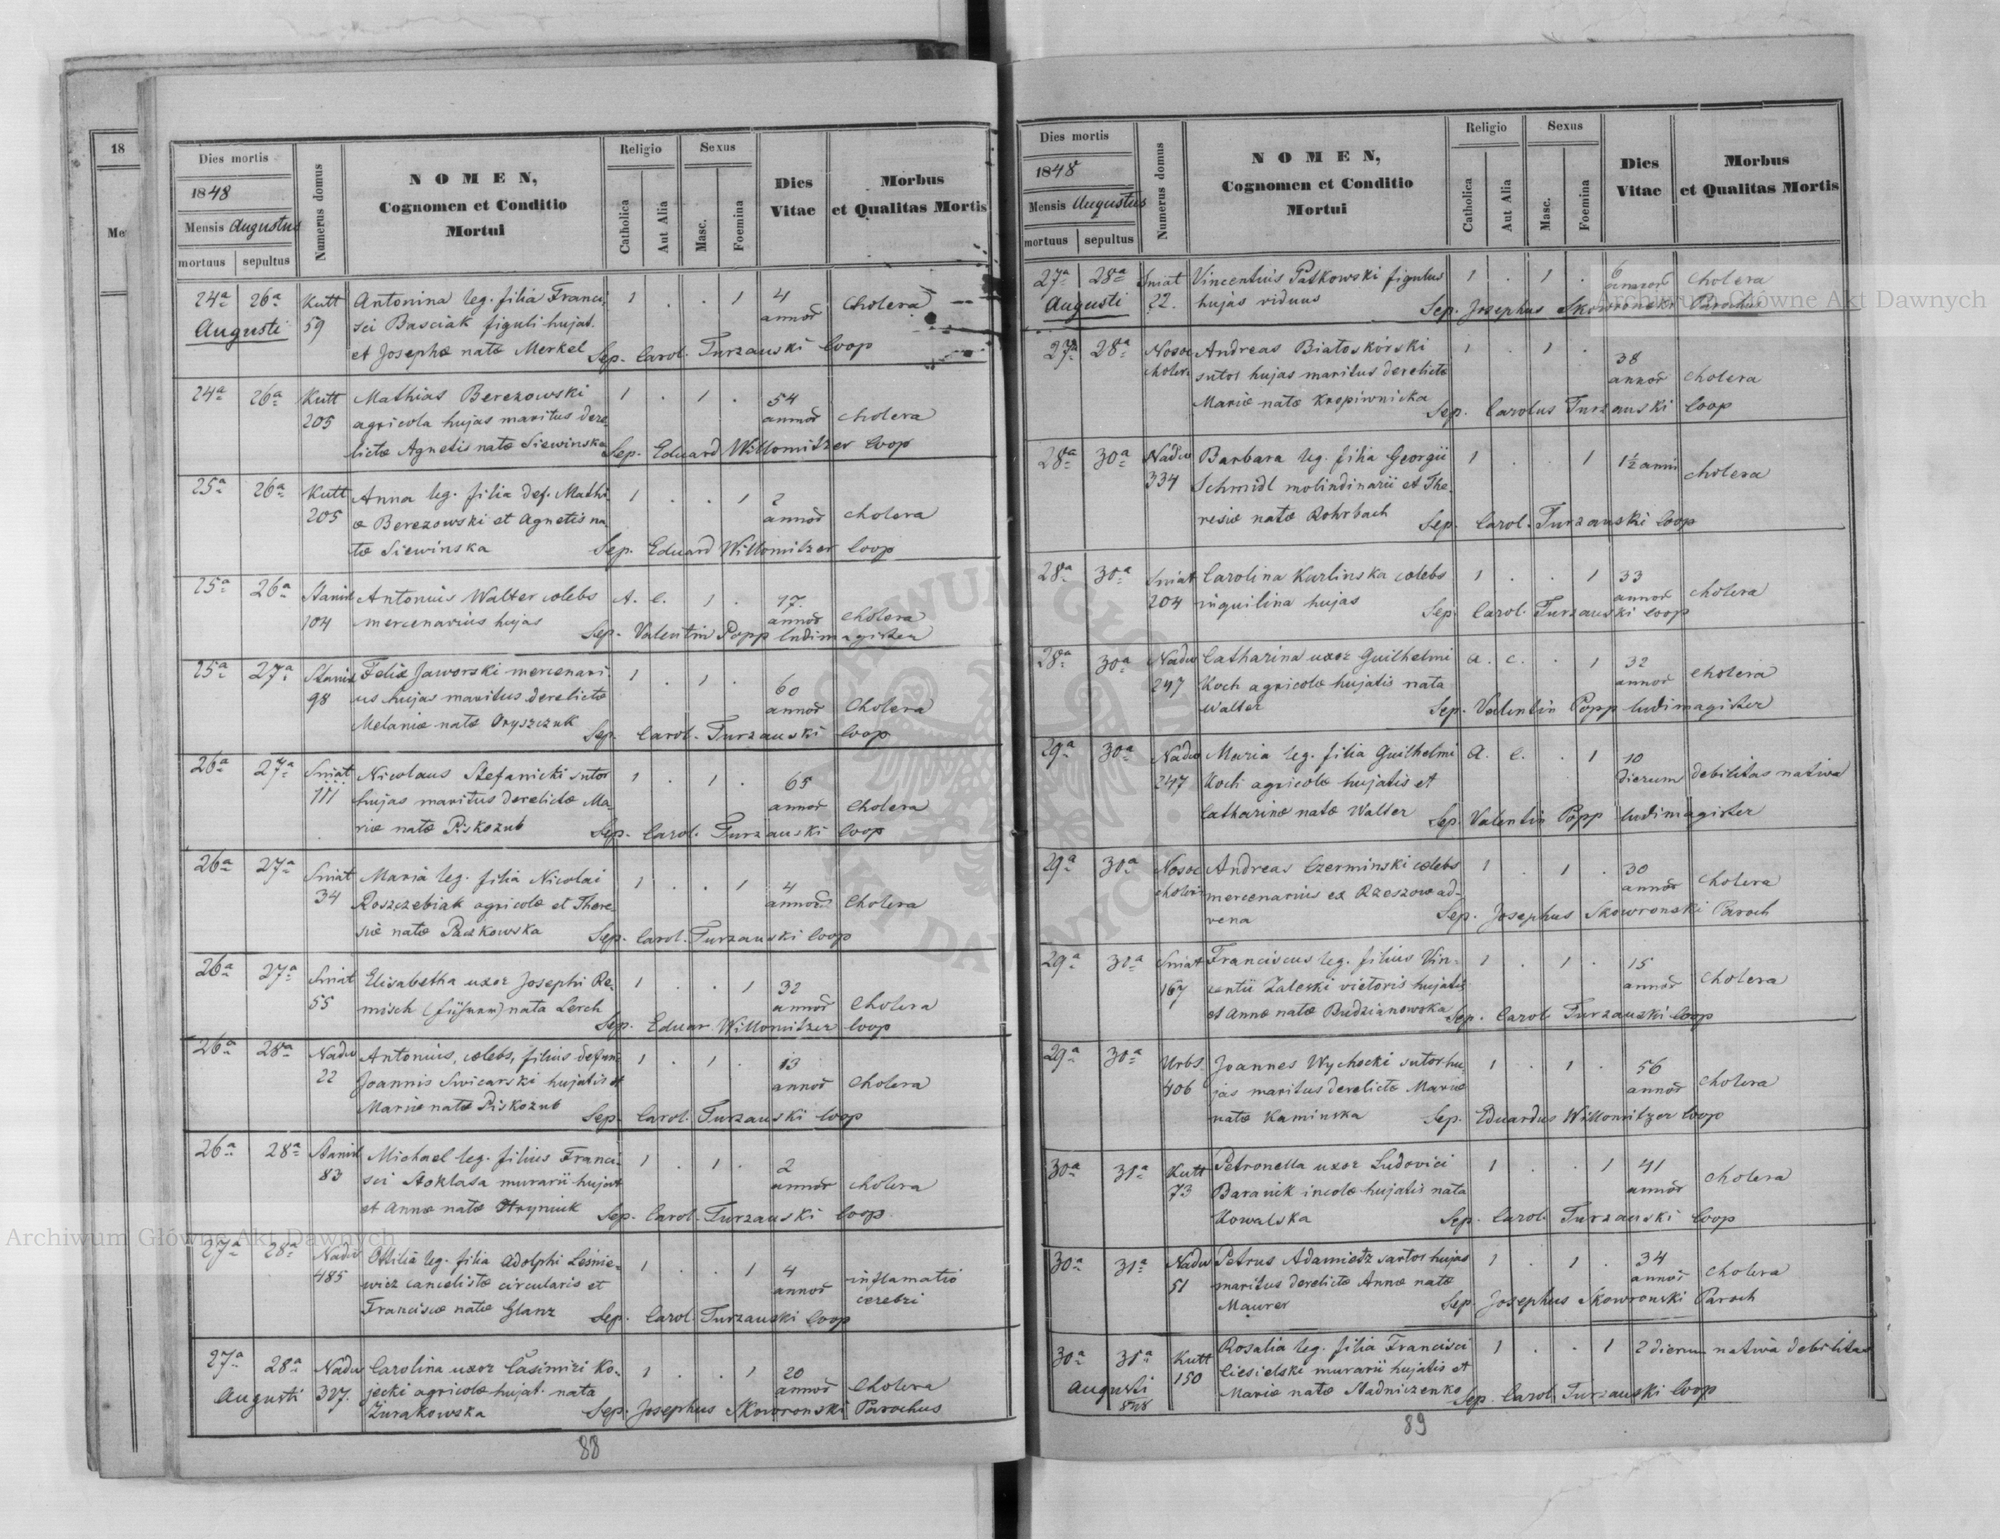 18
Me
Dies mortis
1848
Mensis Augustus
mortuus sepultus
Numerus domus
NOMEN,
Cognomen et Conditio
Mortui
Religio
Catholica
Aut Alia
Sexus
Masc.
Foemina
Dies
Vitae
Morbus
et Qualitas Mortis
24a 26a Kutt Antonina leg. filia Franci- 1 . . 1 4 Cholera
Augusti 59 sci Basciak figuli hujat. annor
et Josephæ natæ Merkel Sep. Carol. Turzanski Coop
24a 26a Kutt Mathias Berezowski 1 . 1 . 54
205 agricola hujas maritus dere- annor cholera
lictæ Agnetis natæ Siewinska Sep. Eduard Willomitzer Coop
25a 26a Kutt Anna leg. filia def. Mathi- 1 . . 1 2
205 æ Berezowski et Agnetis na- annor cholera
tæ Siewinska Sep. Eduard Willomitzer Coop
25a 26a Stanis Antonius Walter cœlebs A. C. 1 . 17
104 mercenarius hujas annor cholera
Sep. Valentin Popp ludimagister
25a 27a Stanis Felix Jaworski mercenari- 1 . 1 . 60
98 us hujas maritus derelictæ annor Cholera
Melaniæ natæ Oryszczuk Sep. Carol. Turzanski Coop
26a 27a Sniat Nicolaus Stefanicki sutor 1 . 1 . 65
111 hujas maritus derelictæ Ma- annor Cholera
riæ natæ Piskozub Sep. Carol. Turzanski Coop
26a 27a Sniat Maria leg. filia Nicolai 1 . . 1 4
34 Roszczebiak agricolæ et There- annor Cholera
siæ natæ Paczkowska Sep. Carol. Turzanski Coop
26a 27a Sniat Elisabetha uxor Josephi Re- 1 . . 1 32
55 misch nata Lerch annor Cholera
Sep. Eduar Willomitzer Coop
26a 28a Nadw Antonius, cœlebs, filius defunc 1 . 1 . 13
22 Joannis Swicarski hujatis et annor Cholera
Mariæ natæ Piskozub Sep. Carol. Turzanski Coop
26a 28a Stanisl Michael leg. filius Franci- 1 . 1 . 2
83 sci Stoklasa murarii hujat annor cholera
et Annæ natæ Hryniuk Sep. Carol. Turzanski Coop
27a 28a Nadw Ottilia leg. filia Adolphi Lesnie- 1 . . 1 4 inflamatio
485 wicz cancelistæ circularis et annor cerebri
Franciscæ natæ Glanz Sep. Carol. Turzanski Coop
27a 28a Nadw Carolina uxor Casimiri Ko- 1 . . 1 20
Augusti 327. jecki agricolæ hujat. nata annor Cholera
Zurakowska Sep. Josephus Skowronski Parochus
88
Dies mortis
1848
Mensis Augustus
mortuus sepultus
Numerus domus
NOMEN,
Cognomen et Conditio
Mortui
Religio
Catholica
Aut Alia
Sexus
Masc.
Foemina
Dies
Vitae
Morbus
et Qualitas Mortis
27a 28a Sniat Vincentius Patkowski figulus 1 . 1 . 6 cholera
Augusti 22. hujas viduus annor
Sep. Josephus Skowronski Parochus
27a 28a Nosoc Andreas Białoskórski 1 . 1 . 38
choler. sutor hujas maritus derelictæ annor cholera
Mariæ natæ Kropiwnicka Sep. Carolus Turzanski Coop
28a 30a Nadw Barbara leg. filia Georgii 1 . . 1 1½ anni
334 Schmidl molindinarii et The- cholera
resiæ natæ Rohrbach Sep. Carol. Turzanski Coop
28a 30a Sniat Carolina Karlinska cœlebs 1 . . 1 33
204 inquilina hujas annor cholera
Sep. Carol. Turzanski Coop
28a 30a Nadw Catharina uxor Guilhelmi A. C. . 1 32
247 Koch agricolæ hujatis nata annor cholera
Walter Sep. Valentin Popp ludimagister
29a 30a Nadw Maria leg. filia Guilhelmi A. C. . 1 10
247 Koch agricolæ hujatis et dierum debilitas nativa
Catharinæ natæ Walter Sep. Valentin Popp ludimagister
29a 30a Nosoc Andreas Czerminski cœlebs 1 . 1 . 30
choler. mercenarius ex Rzeszow ad- annor cholera
vena Sep. Josephus Skowronski Paroch
29a 31a Sniat Franciscus leg. filius Vin- 1 . 1 . 15
167 centii Zaleski vietoris hujatis annor cholera
et Annæ natæ Budzianowska Sep. Carol Turzanski Coop
29a 30a Urbs Joannes Wychocki sutor hu- 1 . 1 . 56
406 jas maritus derelictæ Mariæ annor cholera
natæ Kaminska Sep. Eduardus Willomitzer Coop
30a 31a Kutt Petronella uxor Ludovici 1 . . 1 41
73 Baranik incolæ hujatis nata annor cholera
Kowalska Sep. Carol. Turzanski Coop
30a 31a Nadw Petrus Adamietz sartor hujas 1 . 1 . 34
51 maritus derelictæ Annæ natæ annor cholera
Maurer Sep. Josephus Skowronski Paroch
30a 31a Kutt Rosalia leg. filia Francisci 1 . . 1 2 dierum nativa debilitas
Augusti 150 Ciesielski murarii hujatis et
848 Mariæ natæ Stadniczenko Sep. Carol. Turzanski Coop
89
Archiwum Główne Akt Dawnych
Archiwum Główne Akt Dawnych
ARCHIWUM GŁÓWNE AKT DAWNYCH